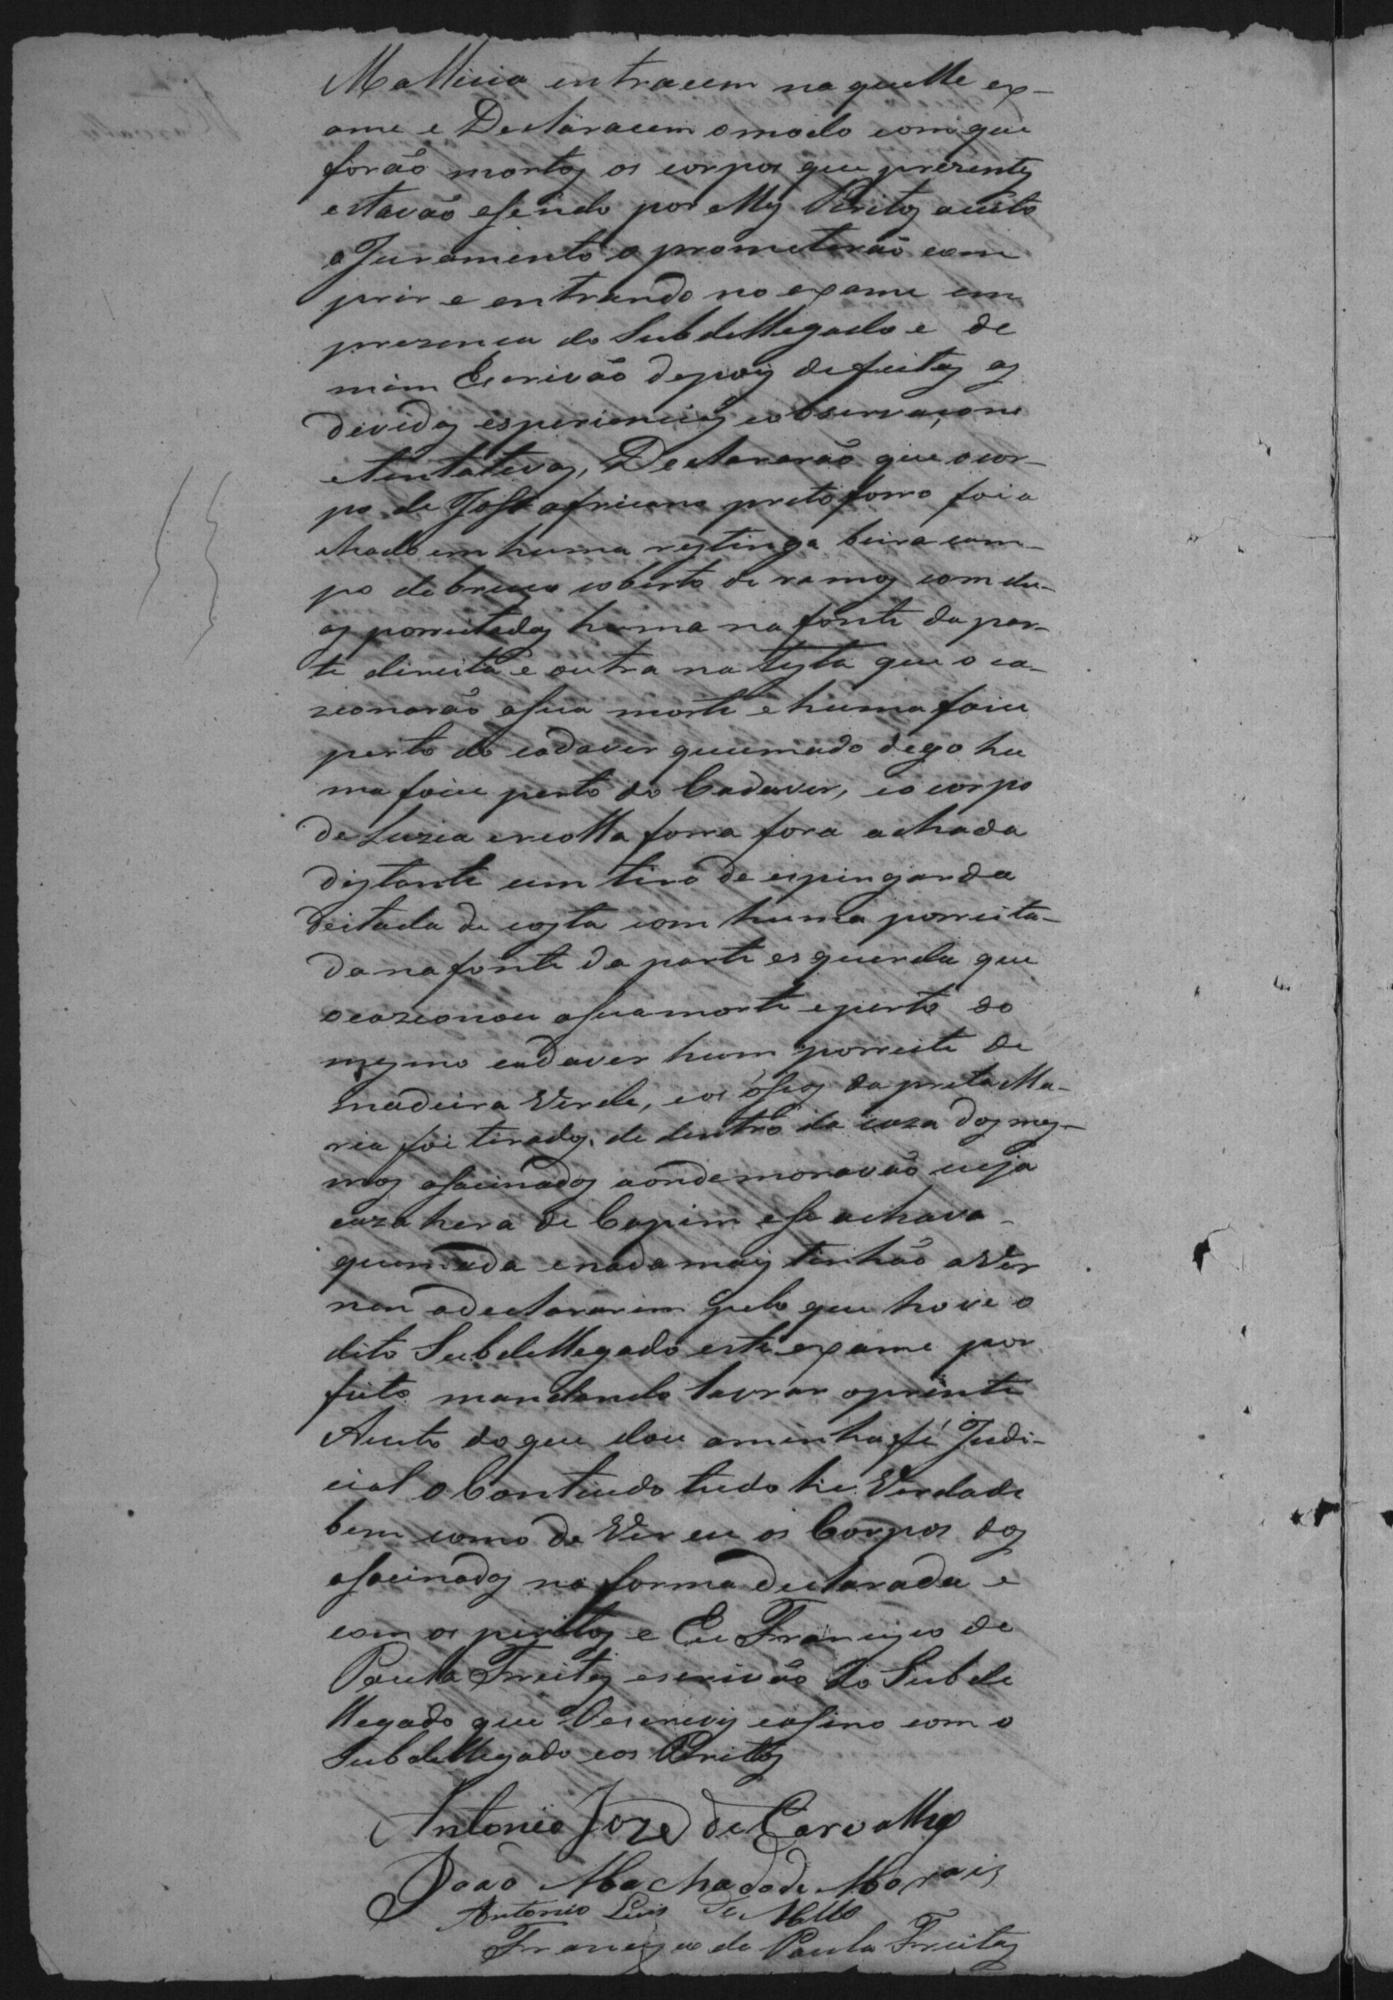 Mallicia entracem na quelle ex-
ame e Declaracem o modo com que
forão mortos os corpos que prezentes
estavão e sendo por elles Peritos aceito
o Juramento o prometerão com
prir e entrando no exame em
prezenca do Subdellegado e de
mim Escrivão depois de feitas as
devidas esperiencias e observaçons
e tentativas, Declararão que o cor-
po de José africano preto forro foi a
chado em huma restinga beira cam-
po de bruco coberto de ramos com du-
as porretadas huma na fonte da par-
te direita e outra na testa que o ca-
zionarão a sua morte e huma foice
perto do cadaver queimado digo hu
ma foice perto do Cadaver, e o corpo
de Luzia creolla forra fora achada
distante um tiro de espingarda
deitada de costa com huma porreta-
da na fonte da parte esquerda que
ocazionou a sua morte e perto do
mesmo cadaver hum porrete de
madeira Verde, e os ósos da preta Ma-
ria foi tirados de dentro da caza dos mes-
mos asacinados aonde moravão cuja
caza hera de Capim e se achava
queimada e nada mais tinhão a Ver
nem a declararem pelo que hove o
dito Subdellegado este exame por
feito mandando lavrar o prente
Auto do que dou a minha fé Judi-
cial o Conteudo tudo he Verdade
bem como de Ver eu os Corpos dos
asacinados na forma declarada e
com os peritos e Eu Francisco de
Paula Freitas escrivão do Subde
llegado que Oescrevy e asino com o
Subdellegado e os Peritos
Antonio Joze de Carvalho
João Machado de Morais
Antonio Luis de Mello
Francisco de Paula Freitas